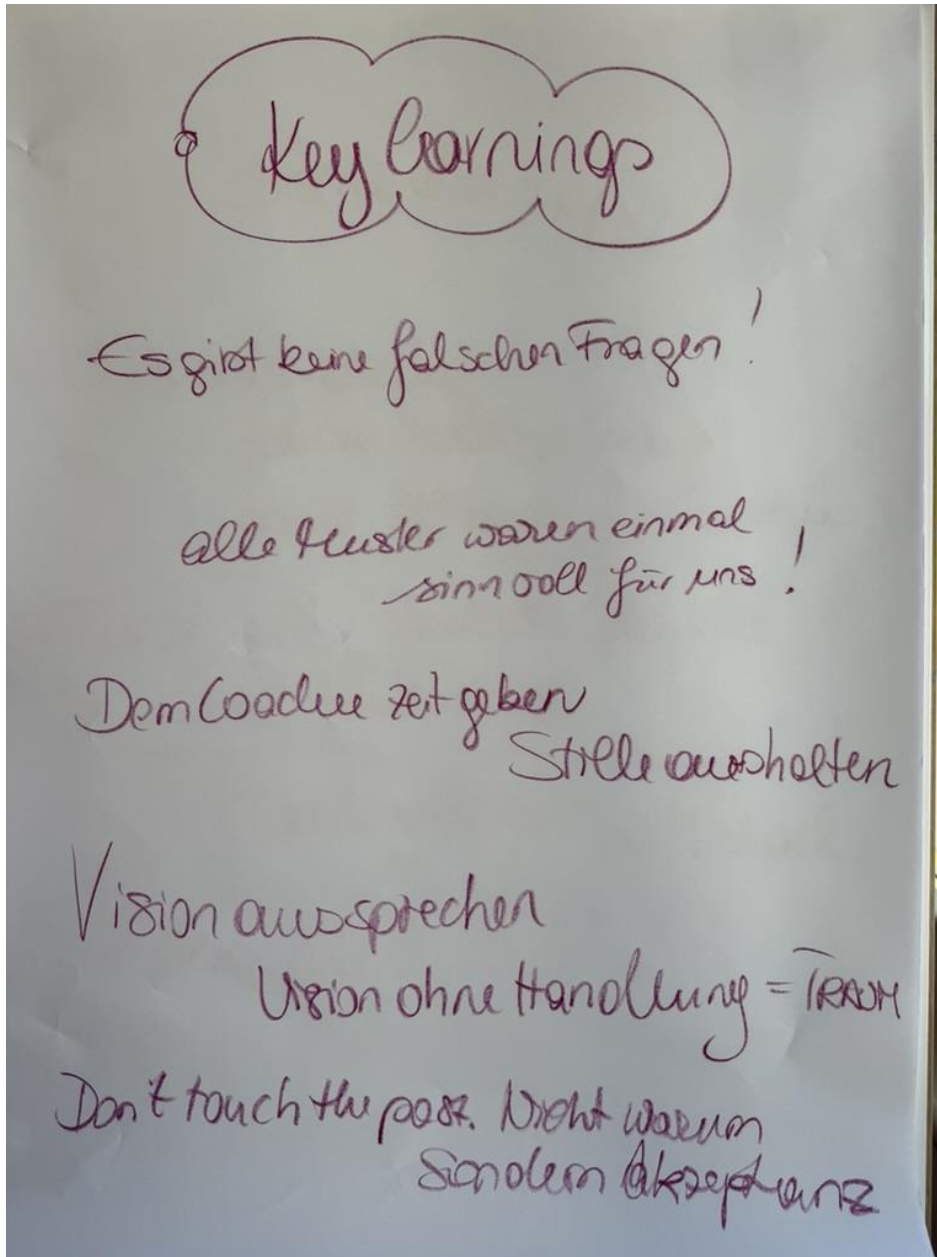 Key learnings
Es gibt keine falschen Fragen!
alle Muster waren einmal
sinnvoll für uns!
Dem Coachee Zeit geben
Stille aushalten
Vision aussprechen
Vision ohne Handlung = TRAUM
Don't touch the past. Nicht warum
sondern Akzeptanz